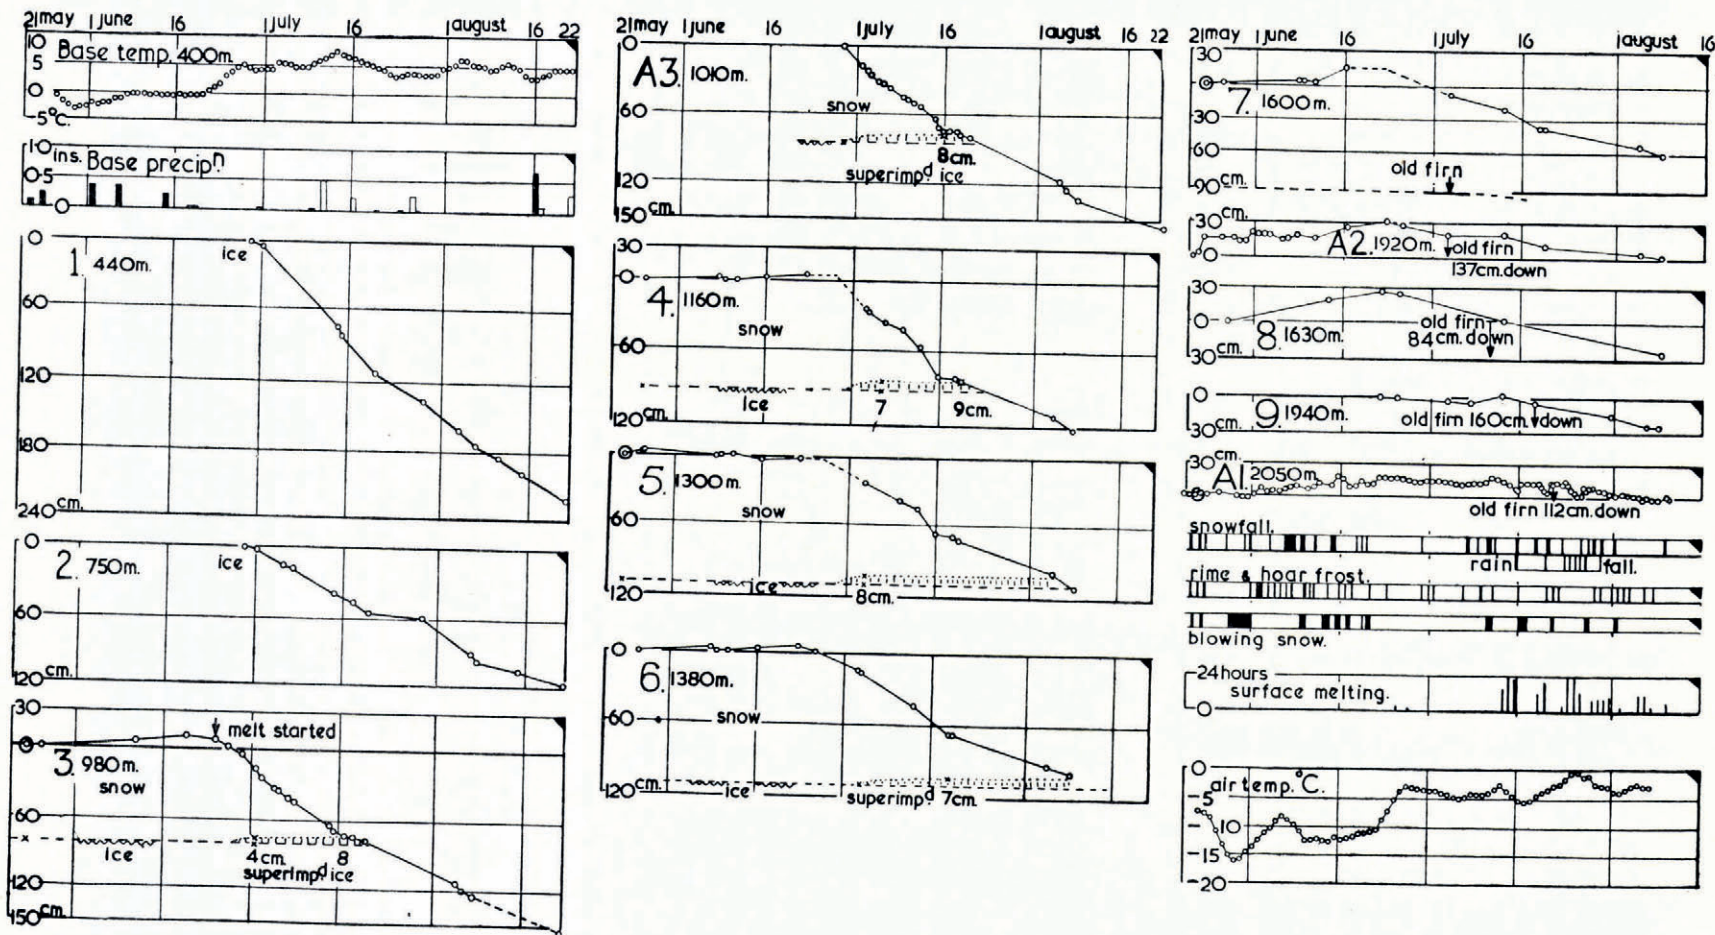 21 may 1 june 16 1 july 16 1 august 16 22
10
5
0
-5°C.
Base temp. 400m.
1·0 ins.
0·5
0
Base precipn.
0
60
120
180
240 cm.
1. 440m.
ice
0
60
120 cm.
2. 750m.
ice
30
0
60
120
150 cm.
melt started
3. 980m.
snow
ice
4cm. 8
superimpd ice
21 may 1 june 16 1 july 16 1 august 16 22
0
60
120
150 cm.
A3. 1010m.
snow
8cm.
superimpd ice
30
0
60
120 cm.
4. 1160m.
snow
ice 7 9cm.
0
60
120
5. 1300m.
snow
ice
8cm.
0
60
120 cm.
6. 1380m.
snow
ice superimpd 7cm.
21 may 1 june 16 1 july 16 1 august 16
30
0
30
60
90 cm.
7. 1600m.
old firn
30 cm.
0
A2. 1920m. old firn
137cm.down
30
0
30 cm.
8. 1630m.
old firn
84cm.down
0
30 cm.
9. 1940m.
old firn 160cm. down
30 cm.
0
A1. 2050m.
old firn 112cm.down
snowfall.
rain fall.
rime & hoar frost.
blowing snow.
24 hours
0
surface melting.
0
-5
-10
-15
-20
air temp.°C.